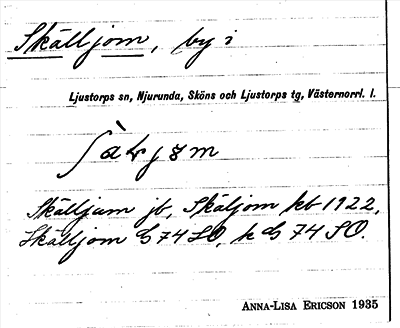 Skälljom, by i
Ljustorps sn, Njurunda, Sköns och Ljustorps tg, Västernorrl. l.
Skälljum jb, Skäljom kb 1922,
Skälljom G 74 SO, k G 74 SO.
ANNA-LISA ERICSON 1935